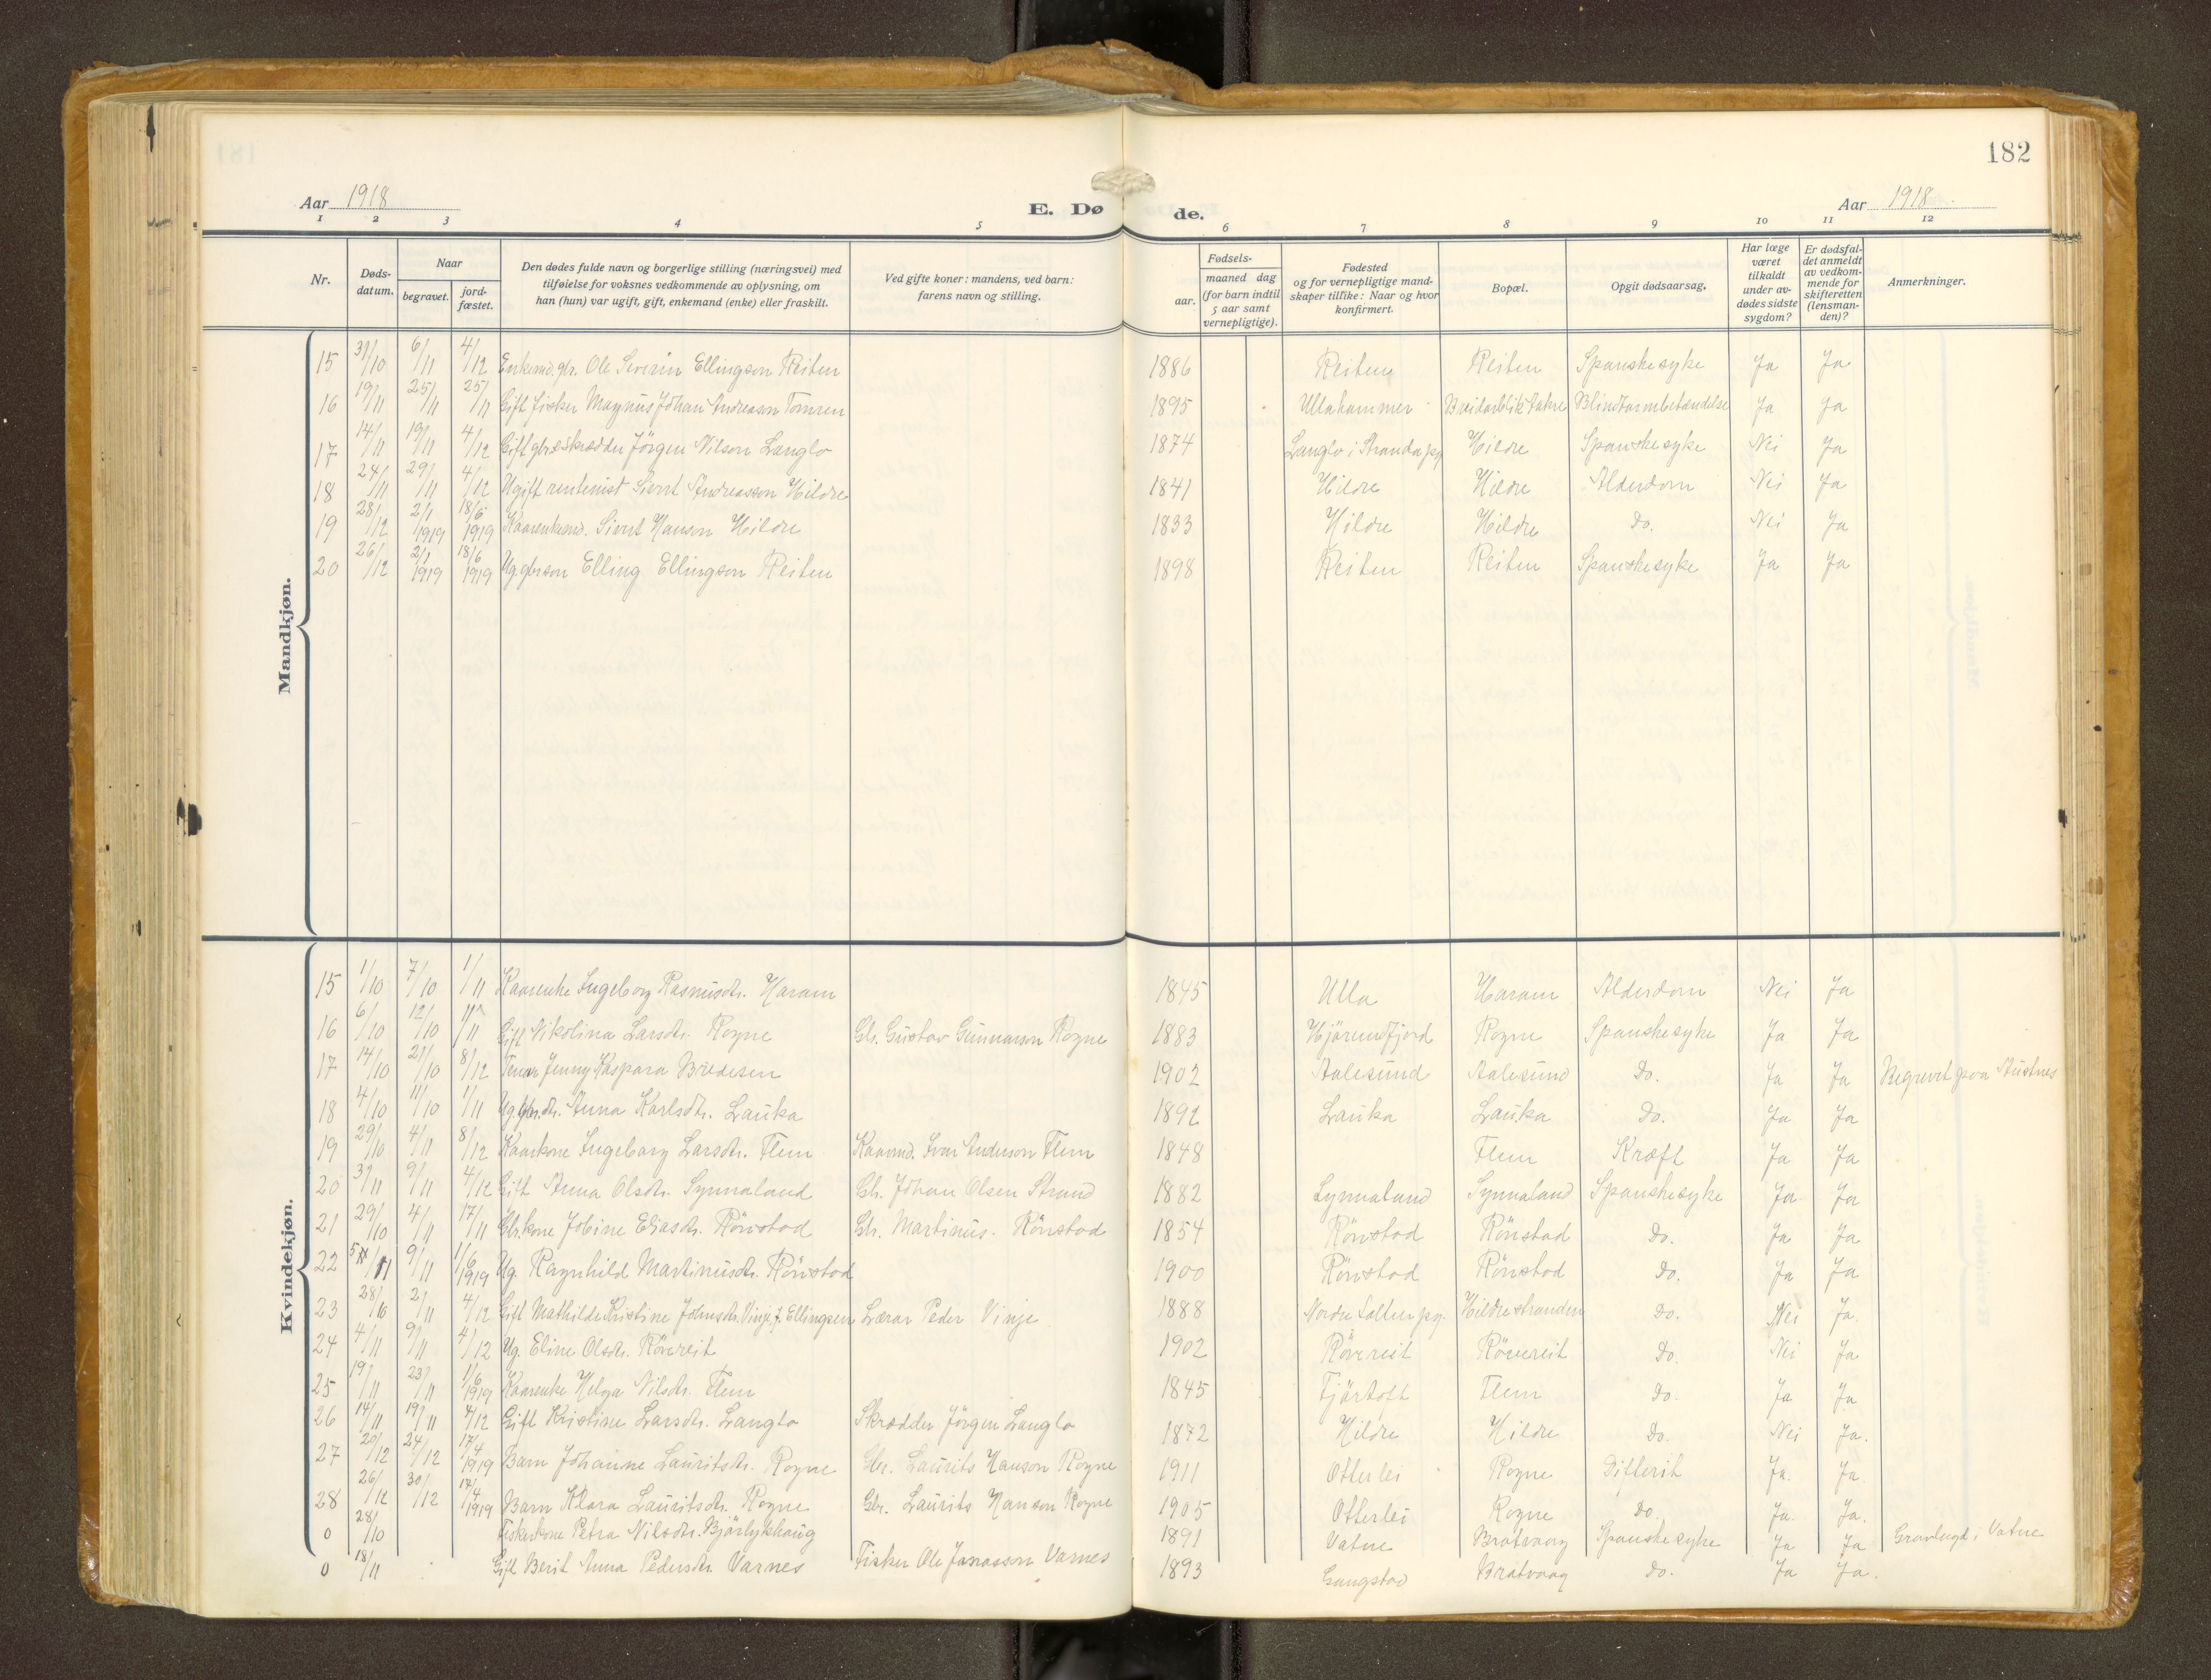 182
Aar 1918
E. Dø de.
Aar 1918
1 2 3 4 5 6 7 8 9 10 11 12
Nr.
Døds-
datum.
Naar
begravet.
jord-
fæstet.
Den dødes fulde navn og borgerlige stilling (næringsvei) med
tilføielse for voksnes vedkommende av oplysning, om
han (hun) var ugift, gift, enkemand (enke) eller fraskilt.
Ved gifte koner: mandens, ved barn:
farens navn og stilling.
Fødsels-
aar.
maaned dag
(for barn indtil
5 aar samt
vernepligtige).
Fødested
og for vernepligtige mand-
skaper tillike: Naar og hvor
konfirmert.
Bopæl.
Opgit dødsaarsag.
Har læge
været
tilkaldt
under av-
dødes sidste
sygdom?
Er dødsfal-
det anmeldt
av vedkom-
mende for
skifteretten
(lensman-
den)?
Anmerkninger.
Mandkjøn.
15 31/10 6/11 4/12 Enkemd. gbr. Ole Severin Ellingson Reiten 1886 Reiten Reiten Spanske syke Ja Ja
16 19/11 25/11 25/11 Gift fisker Magnus Johan Andreason Tomren 1895 Ullahammer Breidablik Blindtarmbetændelse Ja Ja
17 14/11 19/11 4/12 Gift gbr. & skrædder Jörgen Nilson Langlo 1874 Langlo i Stranda pg Hildre Spanske syke Nei Ja
18 24/11 29/11 4/12 Ugift rentenist Sivert Andreasson Hildre 1841 Hildre Hildre Alderdom Nei Ja
19 28/12 2/1 1919 18/6 1919 Kaarenkemd. Sivert Hanson Hildre 1833 Hildre Hildre Do. Nei Ja
20 26/12 2/1 1919 18/6 1919 Ug. gbrson Elling Ellingson Reiten 1898 Reiten Reiten Spanske syke Ja Ja
Kvindekjøn.
15 1/10 7/10 1/11 Kaarenke Ingeborg Rasmusdtr. Haram 1845 Ulla Haram Alderdom Nei Ja
16 6/10 12/10 1/11 Gift Nikolina Larsdtr. Rogne Gbr. Gustav Gunnarson Rogne 1883 Hjörundfjord Rogne Spanske syke Ja Ja
17 14/10 21/10 8/12 Jenny Kaspara Bredesen 1902 Aalesund Aalesund Do. Ja Ja Begravet paa Austnes
18 4/10 11/10 1/11 Ug. gbr.dtr. Anna Karlsdtr. Lauka 1892 Lauka Lauka Do. Ja Ja
19 29/10 4/11 8/12 Kaarkone Ingeborg Larsdtr. Flem Kaarmd. Ivar Anderson Flem 1848 Flem Kræft Ja Ja
20 3/11 9/11 4/12 Gift Anna Olsdtr. Synnaland Gbr. Johan Olsen Strand 1882 Synnaland Synnaland Spanske syke Ja Ja
21 29/10 4/11 17/11 Gbr.kone Jobine Eliasdtr. Rönstad Gbr. Martinus. Rönstad 1854 Rönstad Rönstad Do. Ja Ja
22 5/11 9/11 1/6 1919 Ug. Ragnhild Martinusdtr. Rönstad 1900 Rönstad Rönstad Do. Ja Ja
23 28/10 2/11 4/12 Gift Mathilde Kristine Johnsdtr. Vinje f. Ellingsen Lærar Peder Vinje 1888 Nordre Salten pg. Hildrestranden Do. Nei Ja.
24 4/11 9/11 4/12 Ug. Eline Olsdtr. Rövereit 1902 Rövereit Rövereit Do. Nei Ja
25 19/11 23/11 1/6 1919 Kaarenke Helga Nilsdtr. Flem 1845 Fjörtoft Flem Do. Ja Ja
26 14/11 19/11 4/12 Gift Kristine Larsdtr. Langlo Skrædder Jörgen Langlo 1872 Hildre Hildre Do. Nei Ja.
27 20/12 24/12 17/4 1919 Barn Johanne Lauritsdtr. Rogne Gbr. Laurits Hanson Rogne 1911 Otterlei Rogne Difterit Ja. Ja.
28 26/12 30/12 17/4 1919 Barn Klara Lauritsdtr. Rogne Gbr. Laurits Hanson Rogne 1905 Otterlei Rogne Do. Ja. Ja.
0 28/10 Fiskerkone Petra Nilsdtr. Björlykhaug 1891 Vatne Bratvaag Spanske syke Ja Ja Gravlagd i Vatne
0 18/11 Gift Berit Anna Pedersdtr. Varnes Fisker Ole Jonasson Varnes 1893 Gangstad Bratvaag Do. Ja Ja.